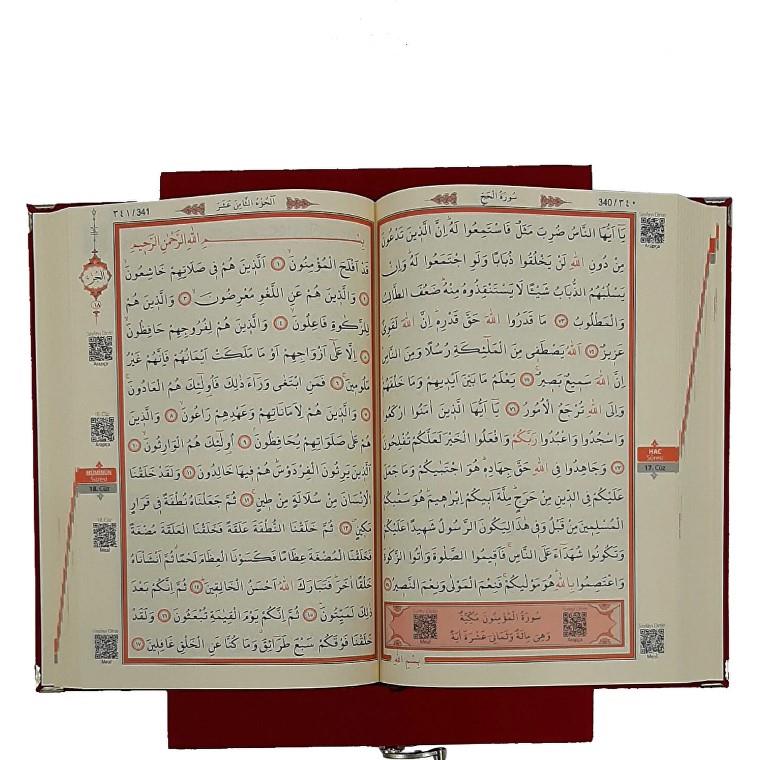 سُورَةُ الْحَجِّ
340/٣٤٠
يَٓا اَيُّهَا النَّاسُ ضُرِبَ مَثَلٌ فَاسْتَمِعُوا لَهُۜ اِنَّ الَّذٖينَ تَدْعُونَ
مِنْ دُونِ اللّٰهِ لَنْ يَخْلُقُوا ذُبَابًا وَلَوِ اجْتَمَعُوا لَهُۜ وَاِنْ
يَسْلُبْهُمُ الذُّبَابُ شَيْـًٔا لَا يَسْتَنْقِذُوهُ مِنْهُۜ ضَعُفَ الطَّالِبُ
وَالْمَطْلُوبُ ٧٣ مَا قَدَرُوا اللّٰهَ حَقَّ قَدْرِهٖۜ اِنَّ اللّٰهَ لَقَوِيٌّ
عَزٖيزٌ ٧٤ اَللّٰهُ يَصْطَفٖي مِنَ الْمَلٰٓئِكَةِ رُسُلًا وَمِنَ النَّاسِۜ
اِنَّ اللّٰهَ سَمٖيعٌ بَصٖيرٌ ٧٥ يَعْلَمُ مَا بَيْنَ اَيْدٖيهِمْ وَمَا خَلْفَهُمْۜ
وَاِلَى اللّٰهِ تُرْجَعُ الْاُمُورُ ٧٦ يَٓا اَيُّهَا الَّذٖينَ اٰمَنُوا ارْكَعُوا
وَاسْجُدُوا وَاعْبُدُوا رَبَّكُمْ وَافْعَلُوا الْخَيْرَ لَعَلَّكُمْ تُفْلِحُونَ
٧٧ وَجَاهِدُوا فِي اللّٰهِ حَقَّ جِهَادِهٖۜ هُوَ اجْتَبٰيكُمْ وَمَا جَعَلَ
عَلَيْكُمْ فِي الدّٖينِ مِنْ حَرَجٍۜ مِلَّةَ اَبٖيكُمْ اِبْرٰهٖيمَۜ هُوَ سَمّٰيكُمُ
الْمُسْلِمٖينَ مِنْ قَبْلُ وَفٖي هٰذَا لِيَكُونَ الرَّسُولُ شَهٖيدًا عَلَيْكُمْ
وَتَكُونُوا شُهَدَٓاءَ عَلَى النَّاسِۚ فَاَقٖيمُوا الصَّلٰوةَ وَاٰتُوا الزَّكٰوةَ
وَاعْتَصِمُوا بِاللّٰهِۜ هُوَ مَوْلٰيكُمْۚ فَنِعْمَ الْمَوْلٰى وَنِعْمَ النَّصٖيرُ ٧٨
سُورَةُ الْمُؤْمِنُونَ مَكِّيَّةٌ
وَهِيَ مِائَةٌ وَثَمَانِيَ عَشْرَةَ اٰيَةً
بِسْمِ اللّٰهِ
Arapça
HAC
Sûresi
17. Cüz
Meal
٣٤١/341
اَلْجُزْءُ الثَّامِنَ عَشَرَ
بِسْمِ اللّٰهِ الرَّحْمٰنِ الرَّحٖيمِ
قَدْ اَفْلَحَ الْمُؤْمِنُونَۙ ١ اَلَّذٖينَ هُمْ فٖي صَلَاتِهِمْ خَاشِعُونَۙ
٢ وَالَّذٖينَ هُمْ عَنِ اللَّغْوِ مُعْرِضُونَۙ ٣ وَالَّذٖينَ هُمْ
لِلزَّكٰوةِ فَاعِلُونَۙ ٤ وَالَّذٖينَ هُمْ لِفُرُوجِهِمْ حَافِظُونَۙ
٥ اِلَّا عَلٰٓى اَزْوَاجِهِمْ اَوْ مَا مَلَكَتْ اَيْمَانُهُمْ فَاِنَّهُمْ غَيْرُ
مَلُومٖينَۚ ٦ فَمَنِ ابْتَغٰى وَرَٓاءَ ذٰلِكَ فَاُو۬لٰٓئِكَ هُمُ الْعَادُونَۚ
٧ وَالَّذٖينَ هُمْ لِاَمَانَاتِهِمْ وَعَهْدِهِمْ رَاعُونَۙ ٨ وَالَّذٖينَ
هُمْ عَلٰى صَلَوَاتِهِمْ يُحَافِظُونَۢ ٩ اُو۬لٰٓئِكَ هُمُ الْوَارِثُونَۙ ١٠
اَلَّذٖينَ يَرِثُونَ الْفِرْدَوْسَۜ هُمْ فٖيهَا خَالِدُونَ ١١ وَلَقَدْ خَلَقْنَا
الْاِنْسَانَ مِنْ سُلَالَةٍ مِنْ طٖينٍۚ ١٢ ثُمَّ جَعَلْنَاهُ نُطْفَةً فٖي قَرَارٍ
مَكٖينٍ ١٣ ثُمَّ خَلَقْنَا النُّطْفَةَ عَلَقَةً فَخَلَقْنَا الْعَلَقَةَ مُضْغَةً
فَخَلَقْنَا الْمُضْغَةَ عِظَامًا فَكَسَوْنَا الْعِظَامَ لَحْمًا ثُمَّ اَنْشَأْنَاهُ
خَلْقًا اٰخَرَۜ فَتَبَارَكَ اللّٰهُ اَحْسَنُ الْخَالِقٖينَۜ ١٤ ثُمَّ اِنَّكُمْ بَعْدَ
ذٰلِكَ لَمَيِّتُونَۜ ١٥ ثُمَّ اِنَّكُمْ يَوْمَ الْقِيٰمَةِ تُبْعَثُونَ ١٦ وَلَقَدْ
خَلَقْنَا فَوْقَكُمْ سَبْعَ طَرَٓائِقَۗ وَمَا كُنَّا عَنِ الْخَلْقِ غَافِلٖينَ ١٧
اَلْجُزْءُ
١٨
Arapça
18. Cüz
Arapça
MÜMİNÛN
Sûresi
18. Cüz
18. Cüz
Meal
Meal